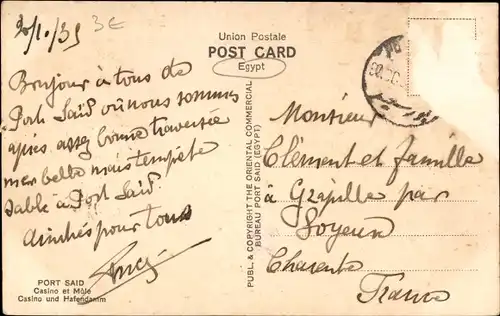 20/1/35
3€
Union Postale
POST CARD
Egypt
Bonjour à tous de
Port Saïd où nous sommes
après assez bonne traversée
mer belle mais tempête
sable à Port Saïd.
pour tous
PORT SAID
Casino et Môle
Casino und Hafendamm
PUBL. & COPYRIGHT THE ORIENTAL COMMERCIAL
BUREAU PORT SAID (EGYPT)
Monsieur
Clément et famille
à par
Charente
France